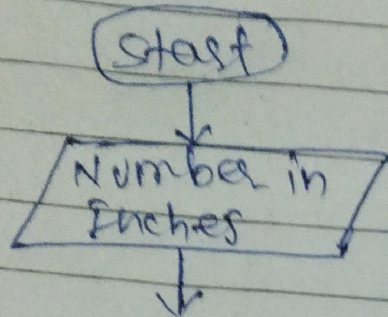 Start
Number in
Inches